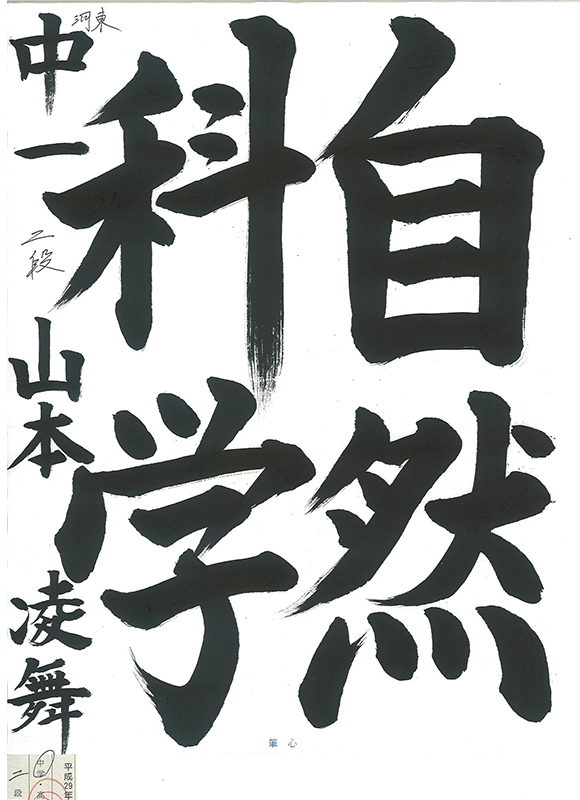 自然
科学
河東
中一
二段
山本凌舞
筆心
平成29年
中学・高
二段